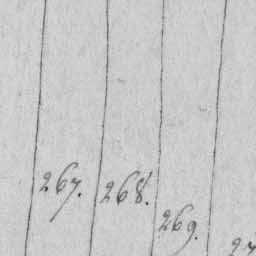 267.
268.
269.